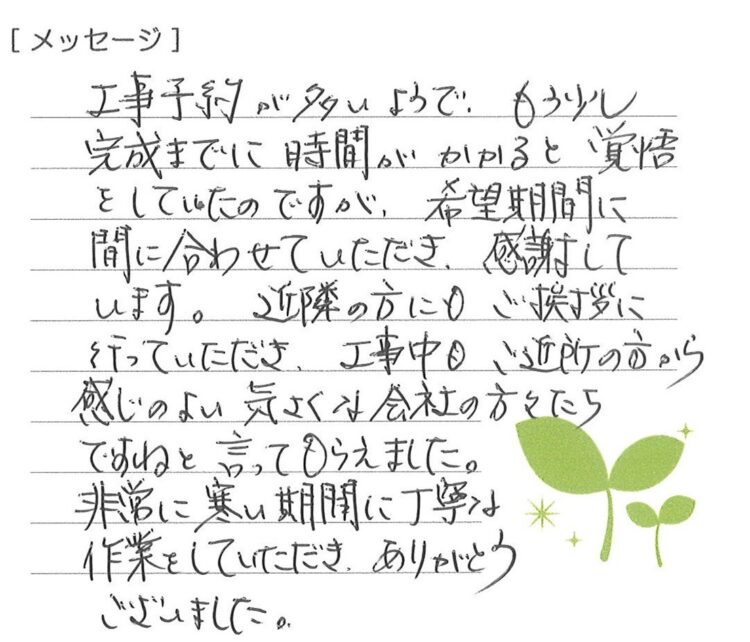 [メッセージ]
工事予約が多いようで、もう少し
完成までに時間がかかると覚悟
をしていたのですが、希望期間に
間に合わせていただき、感謝して
います。近隣の方にも ご挨拶に
行っていただき、工事中も ご近所の方から
感じのよい 気さくな会社の方々たち
ですねと 言ってもらえました。
非常に 寒い期間に丁寧な
作業をしていただき、ありがとう
ございました。